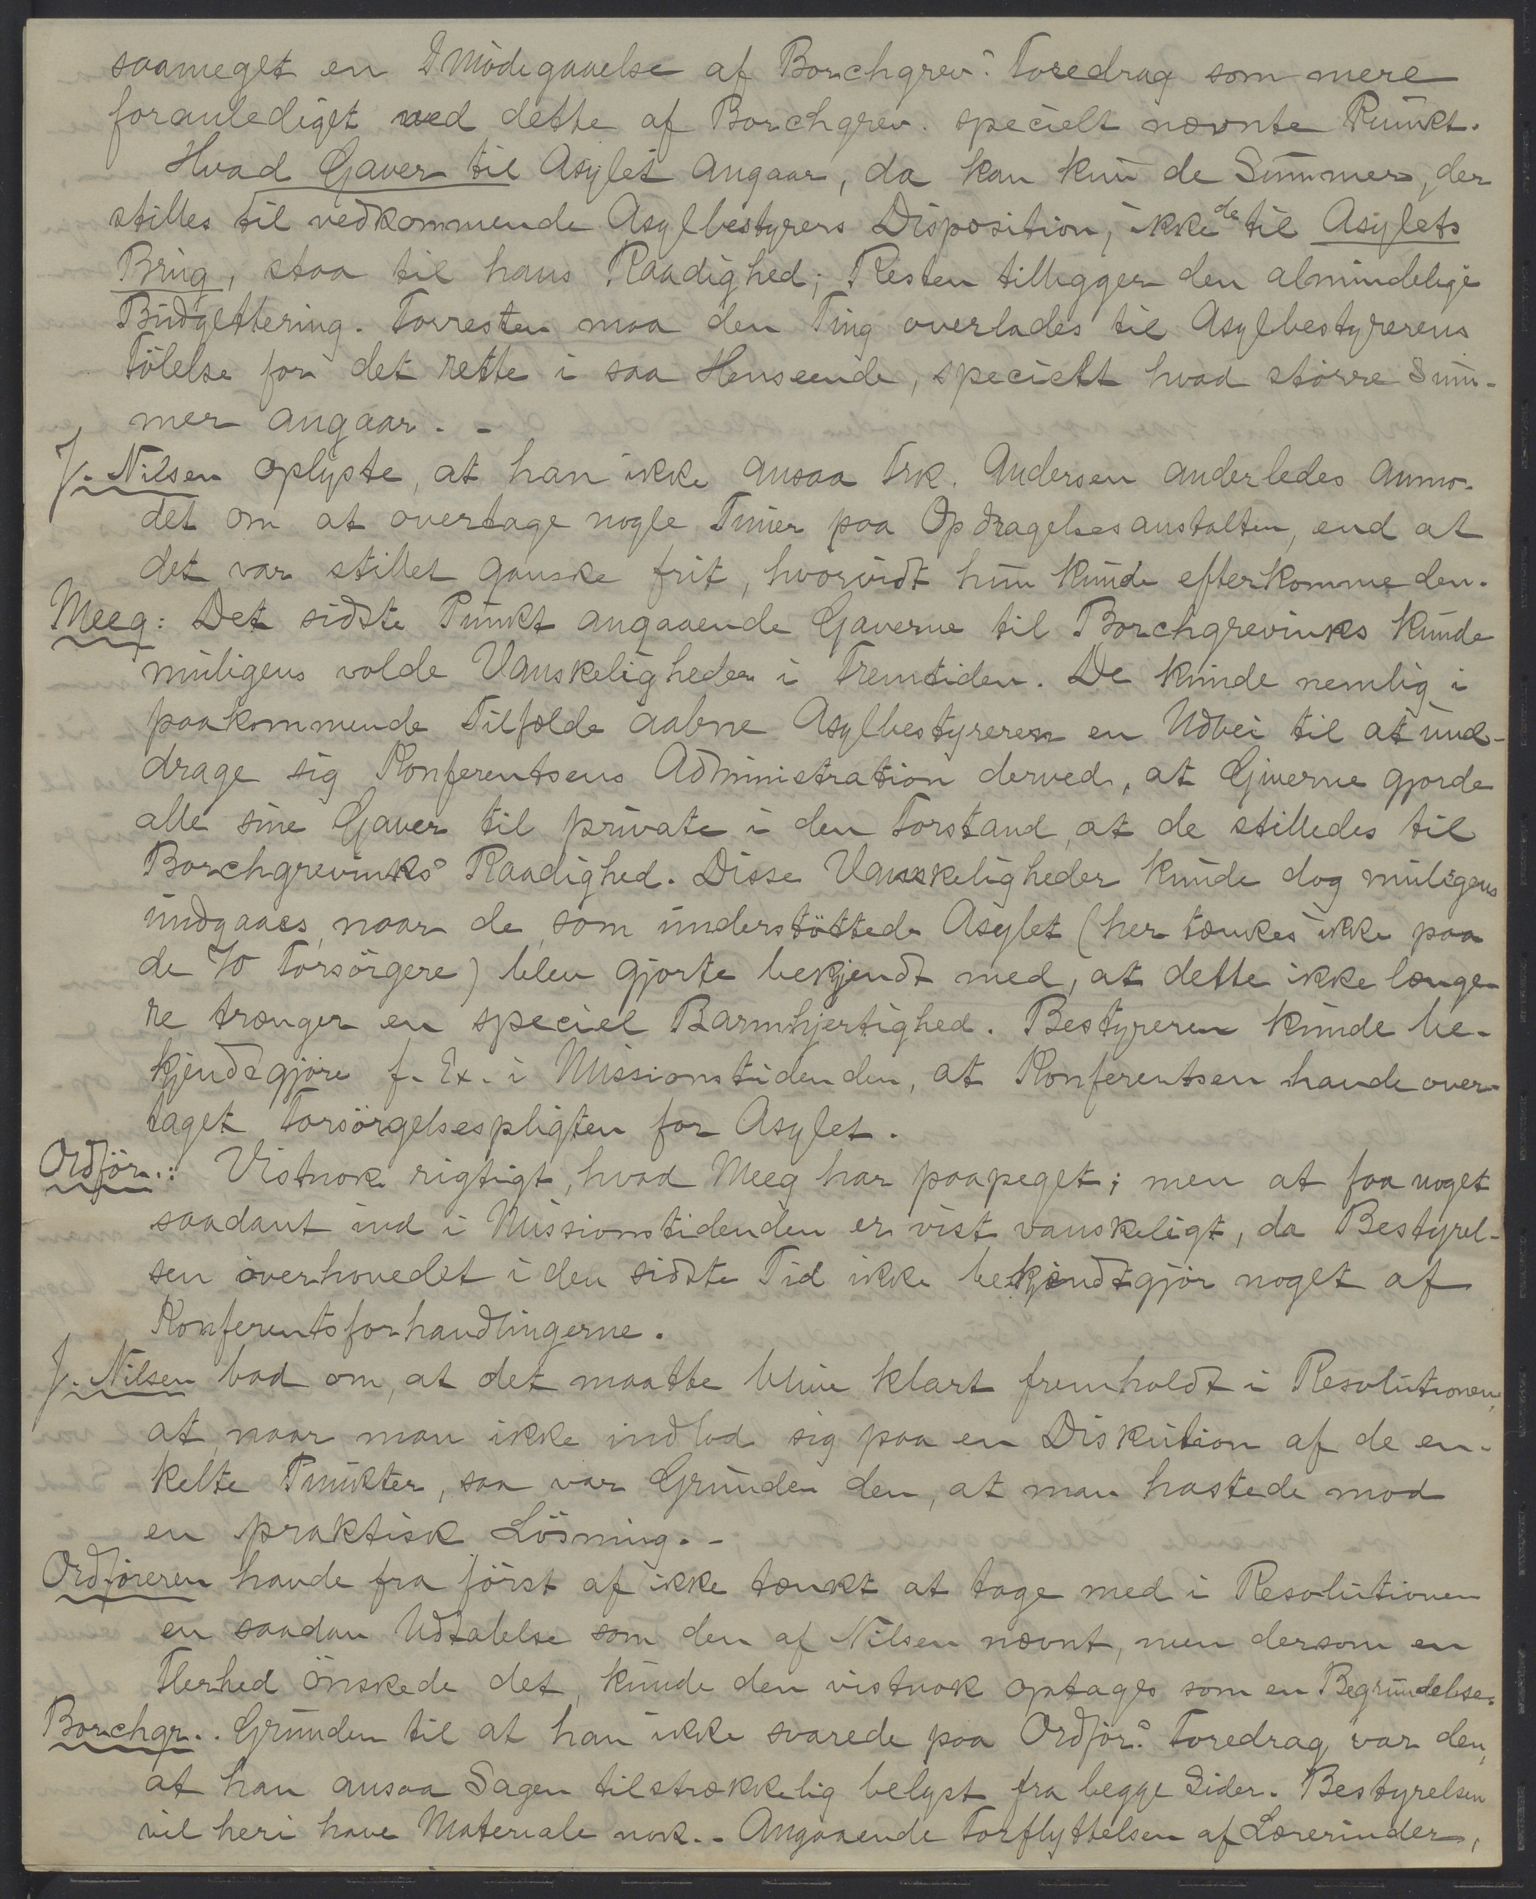 saameget en Imødegaaelse af Borchgrev.s Foredrag som mere
foranlediget ved dette af Borchgrev. specielt nævnte Punkt.
Hvad Gaver til Asylet angaar, da kan kun de Summer, der
stilles til vedkommende Asylbestyrers Disposition, ikke de til Asylets
Brug, staa til hans Raadighed; Resten tilligger den almindelige
Budgettering. Forresten maa den Ting overlades til Asylbestyrerens
Følelse for det rette i saa Henseende, specielt hvad større Sum-
mer angaar. -
J. Nilsen oplyste, at han ikke ansaa Frk. Andersen anderledes anmo-
det om at overtage nogle Timer paa Opdragelsesanstalten, end at
det var stillet ganske frit, hvorvidt hun kunde efterkomme den.
Meeg: Det sidste Punkt angaaende Gaverne til Borchgrevinks kunde
muligens volde Vanskeligheder i Fremtiden. De kunde nemlig i
paakommende Tilfælde aabne Asylbestyreren en Udvei til at und-
drage sig Konferentsens Administration derved, at Giverne gjorde
alle sine Gaver til private i den Forstand, at de stilledes til
Borchgrevinks Raadighed. Disse Vanskeligheder kunde dog muligens
undgaaes, naar de, som understøttede Asylet (her tænkes ikke paa
de 70 Forsørgere) blev gjorte bekjendt med, at dette ikke længe-
re trænger en speciel Barmhjertighed. Bestyreren kunde be-
kjendtgjøre f. Ex. i Missionstidenden, at Konferentsen havde over-
taget Forsørgelsespligten for Asylet.
Ordfør.: Vistnok rigtigt, hvad Meeg har paapeget; men at faa noget
saadant ind i Missionstidenden er vist vanskeligt, da Bestyrel-
sen overhovedet i den sidste Tid ikke bekjendtgjør noget af
Konferentsforhandlingerne.
J. Nilsen bad om, at det maatte blive klart fremholdt i Resolutionen,
at naar man ikke indlod sig paa en Diskution af de en-
kelte Punkter, saa var Grunden den, at man hastede mod
en praktisk Løsning. -
Ordføreren havde fra først af ikke tænkt at tage med i Resolutionen
en saadan Udtalelse som den af Nilsen nævnt, men dersom en
Flerhed ønskede det, kunde den vistnok optages som en Begrundelse.
Borchgr.. Grunden til at han ikke svarede paa Ordfør.s Foredrag var den,
at han ansaa Sagen tilstrækkelig belyst fra begge Sider. Bestyrelsen
vil heri have Materiale nok. - Angaaende Forflyttelsen af Lærerinder,